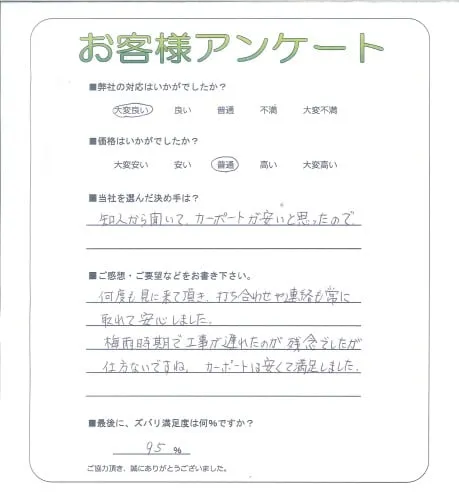 お客様アンケート
■弊社の対応はいかがでしたか?
大変良い 良い 普通 不満 大変不満
■価格はいかがでしたか?
大変安い 安い 普通 高い 大変高い
■当社を選んだ決め手は?
知人から聞いて、カーポートが安いと思ったので
■ご感想・ご要望などをお書き下さい。
何度も見に来て頂き、打ち合わせや連絡も常に
取れて安心しました。
梅雨時期で工事が遅れたのが残念でしたが
仕方ないですね。カーポートは安くて満足しました。
■最後に、ズバリ満足度は何%ですか?
95 %
ご協力頂き、誠にありがとうございました。